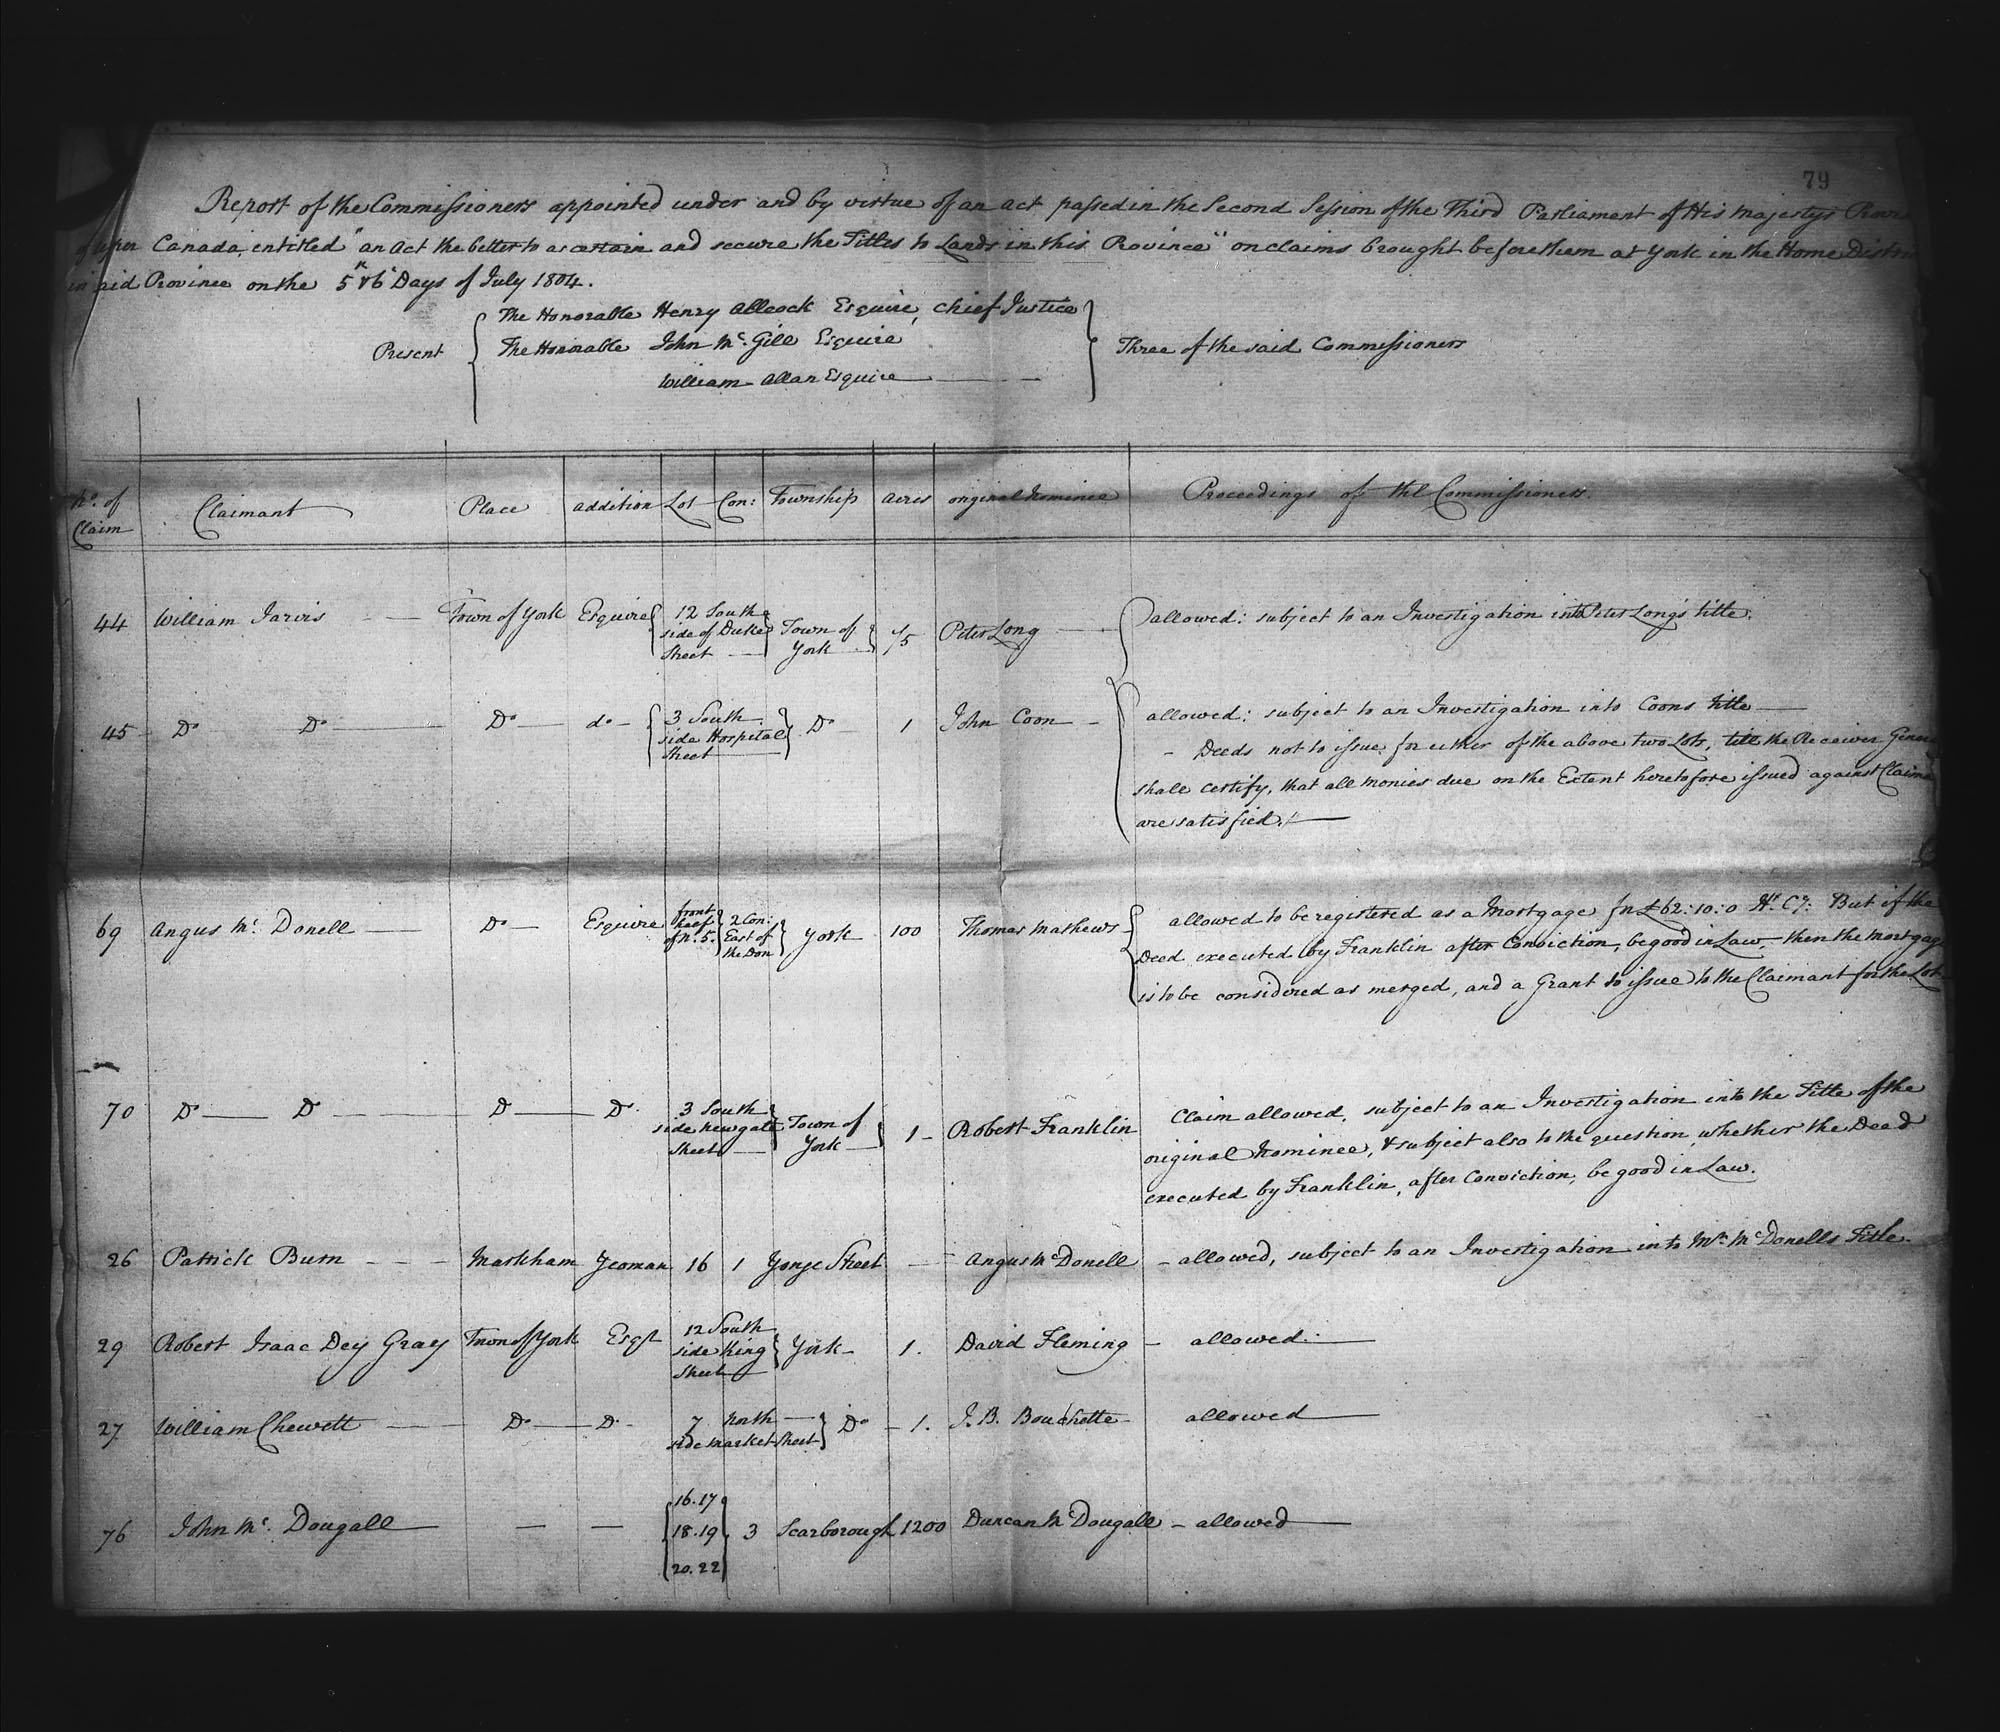 79
Report of the Commissioners appointed under and by virtue of an act passed in the Second Session of the Third Parliament of His Majestys Provi
of Upper Canada, entitled "an Act the better to ascertain and secure the Titles to Lands in this Province" on claims brought before them at York in the Home Distri
in said Province on the 5th & 6th Days of July 1804.
Present
The Honorable Henry Allcock Esquire, Chief Justice
The Honorable John Mc. Gill Esquire
William Allan Esquire
Three of the said Commissioners
No. of Claim Claimant Place addition Lot Con: Township acres original Nominee Proceedings of the Commissioners.
44 William Jarvis Town of York Esquire 12 South side of Duke Street Town of York 1/5 Peter Long allowed: subject to an Investigation into Peter Long's title.
45 Do Do Do do 3 South side Hospital Street Do 1 John Coon allowed: subject to an Investigation into Coons title
Deeds not to issue for either of the above two Lots, till the Receiver Gener
shall certify, that all monies due on the Extent heretofore issued against Claima
are satisfied.
69 Angus Mc. Donell Do Esquire front half of No. 5. 2 Con: East of the Don York 100 Thomas Mathews allowed to be registered as a Mortgage for £62:10:0 Hx. Cy: But if the
Deed executed by Franklin after Conviction, be good in Law, then the mortgage
is to be considered as merged, and a Grant to issue to the Claimant for the Lot
70 Do Do Do Do 3 South side Newgate Street Town of York 1 Robert Franklin Claim allowed, subject to an Investigation into the Title of the
original Nominee, & subject also to the question whether the Deed
executed by Franklin, after Conviction, be good in Law.
26 Patrick Burn Markham Yeoman 16 1 Yonge Street Angus McDonell allowed, subject to an Investigation into Mr. McDonells Title.
29 Robert Isaac Dey Gray Town of York Esqr 12 South side King Street York 1. David Fleming allowed.
27 William Chewett Do Do 7 North side Market Street Do 1. J. B. Bouchette allowed
76 John Mc. Dougall 16.17 18.19 20.22 3 Scarborough 1200 Duncan McDougall allowed